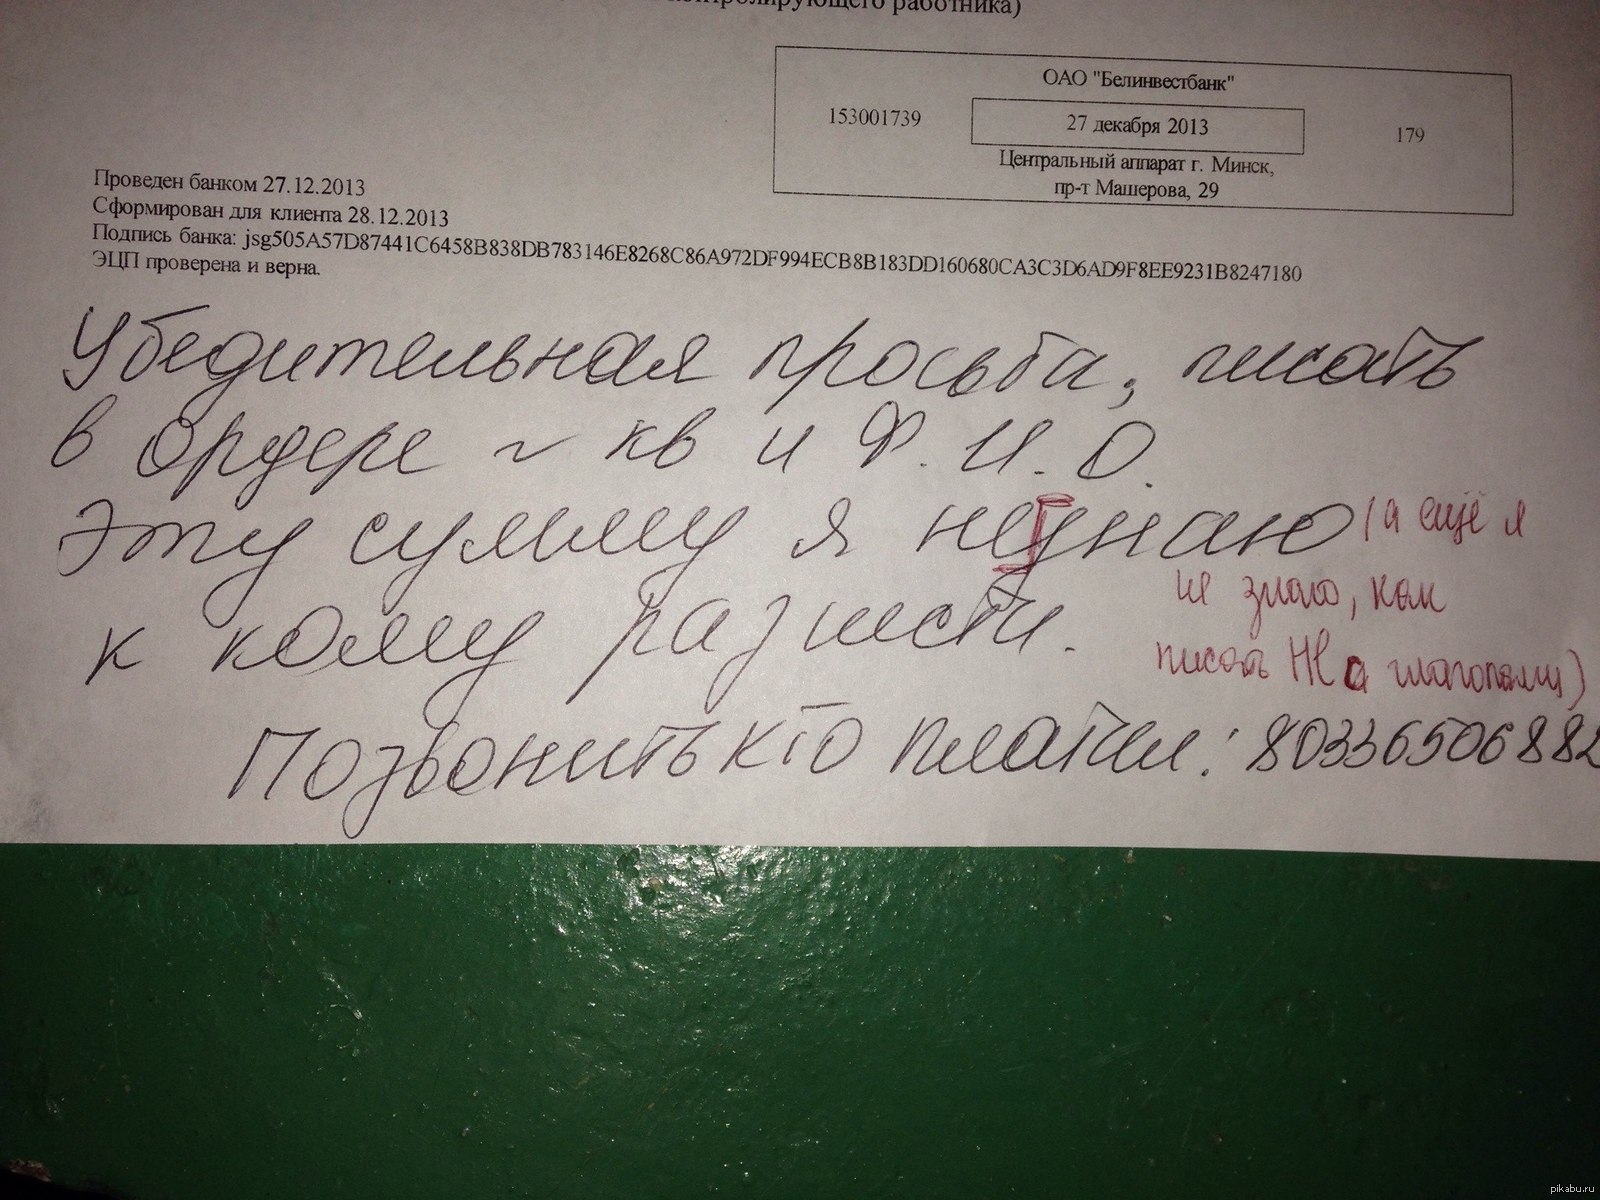 контролирующего работника)
ОАО "Белинвестбанк"
153001739
27 декабря 2013
179
Центральный аппарат г. Минск,
пр-т Машерова, 29
Проведен банком 27.12.2013
Сформирован для клиента 28.12.2013
Подпись банка: jsg505A57D87441C6458B838DB783146E8268C86A972DF994ECB8B183DD160680CA3C3D6AD9F8EE9231B8247180
ЭЦП проверена и верна.
Убедительная просьба, писать
в ордере № кв и Ф.И.О.
Эту сумму я незнаю
(а ещё я
не знаю, как
писать НЕ с глаголами)
к кому разнести.
Позвонить кто платил: 80336506882
pikabu.ru